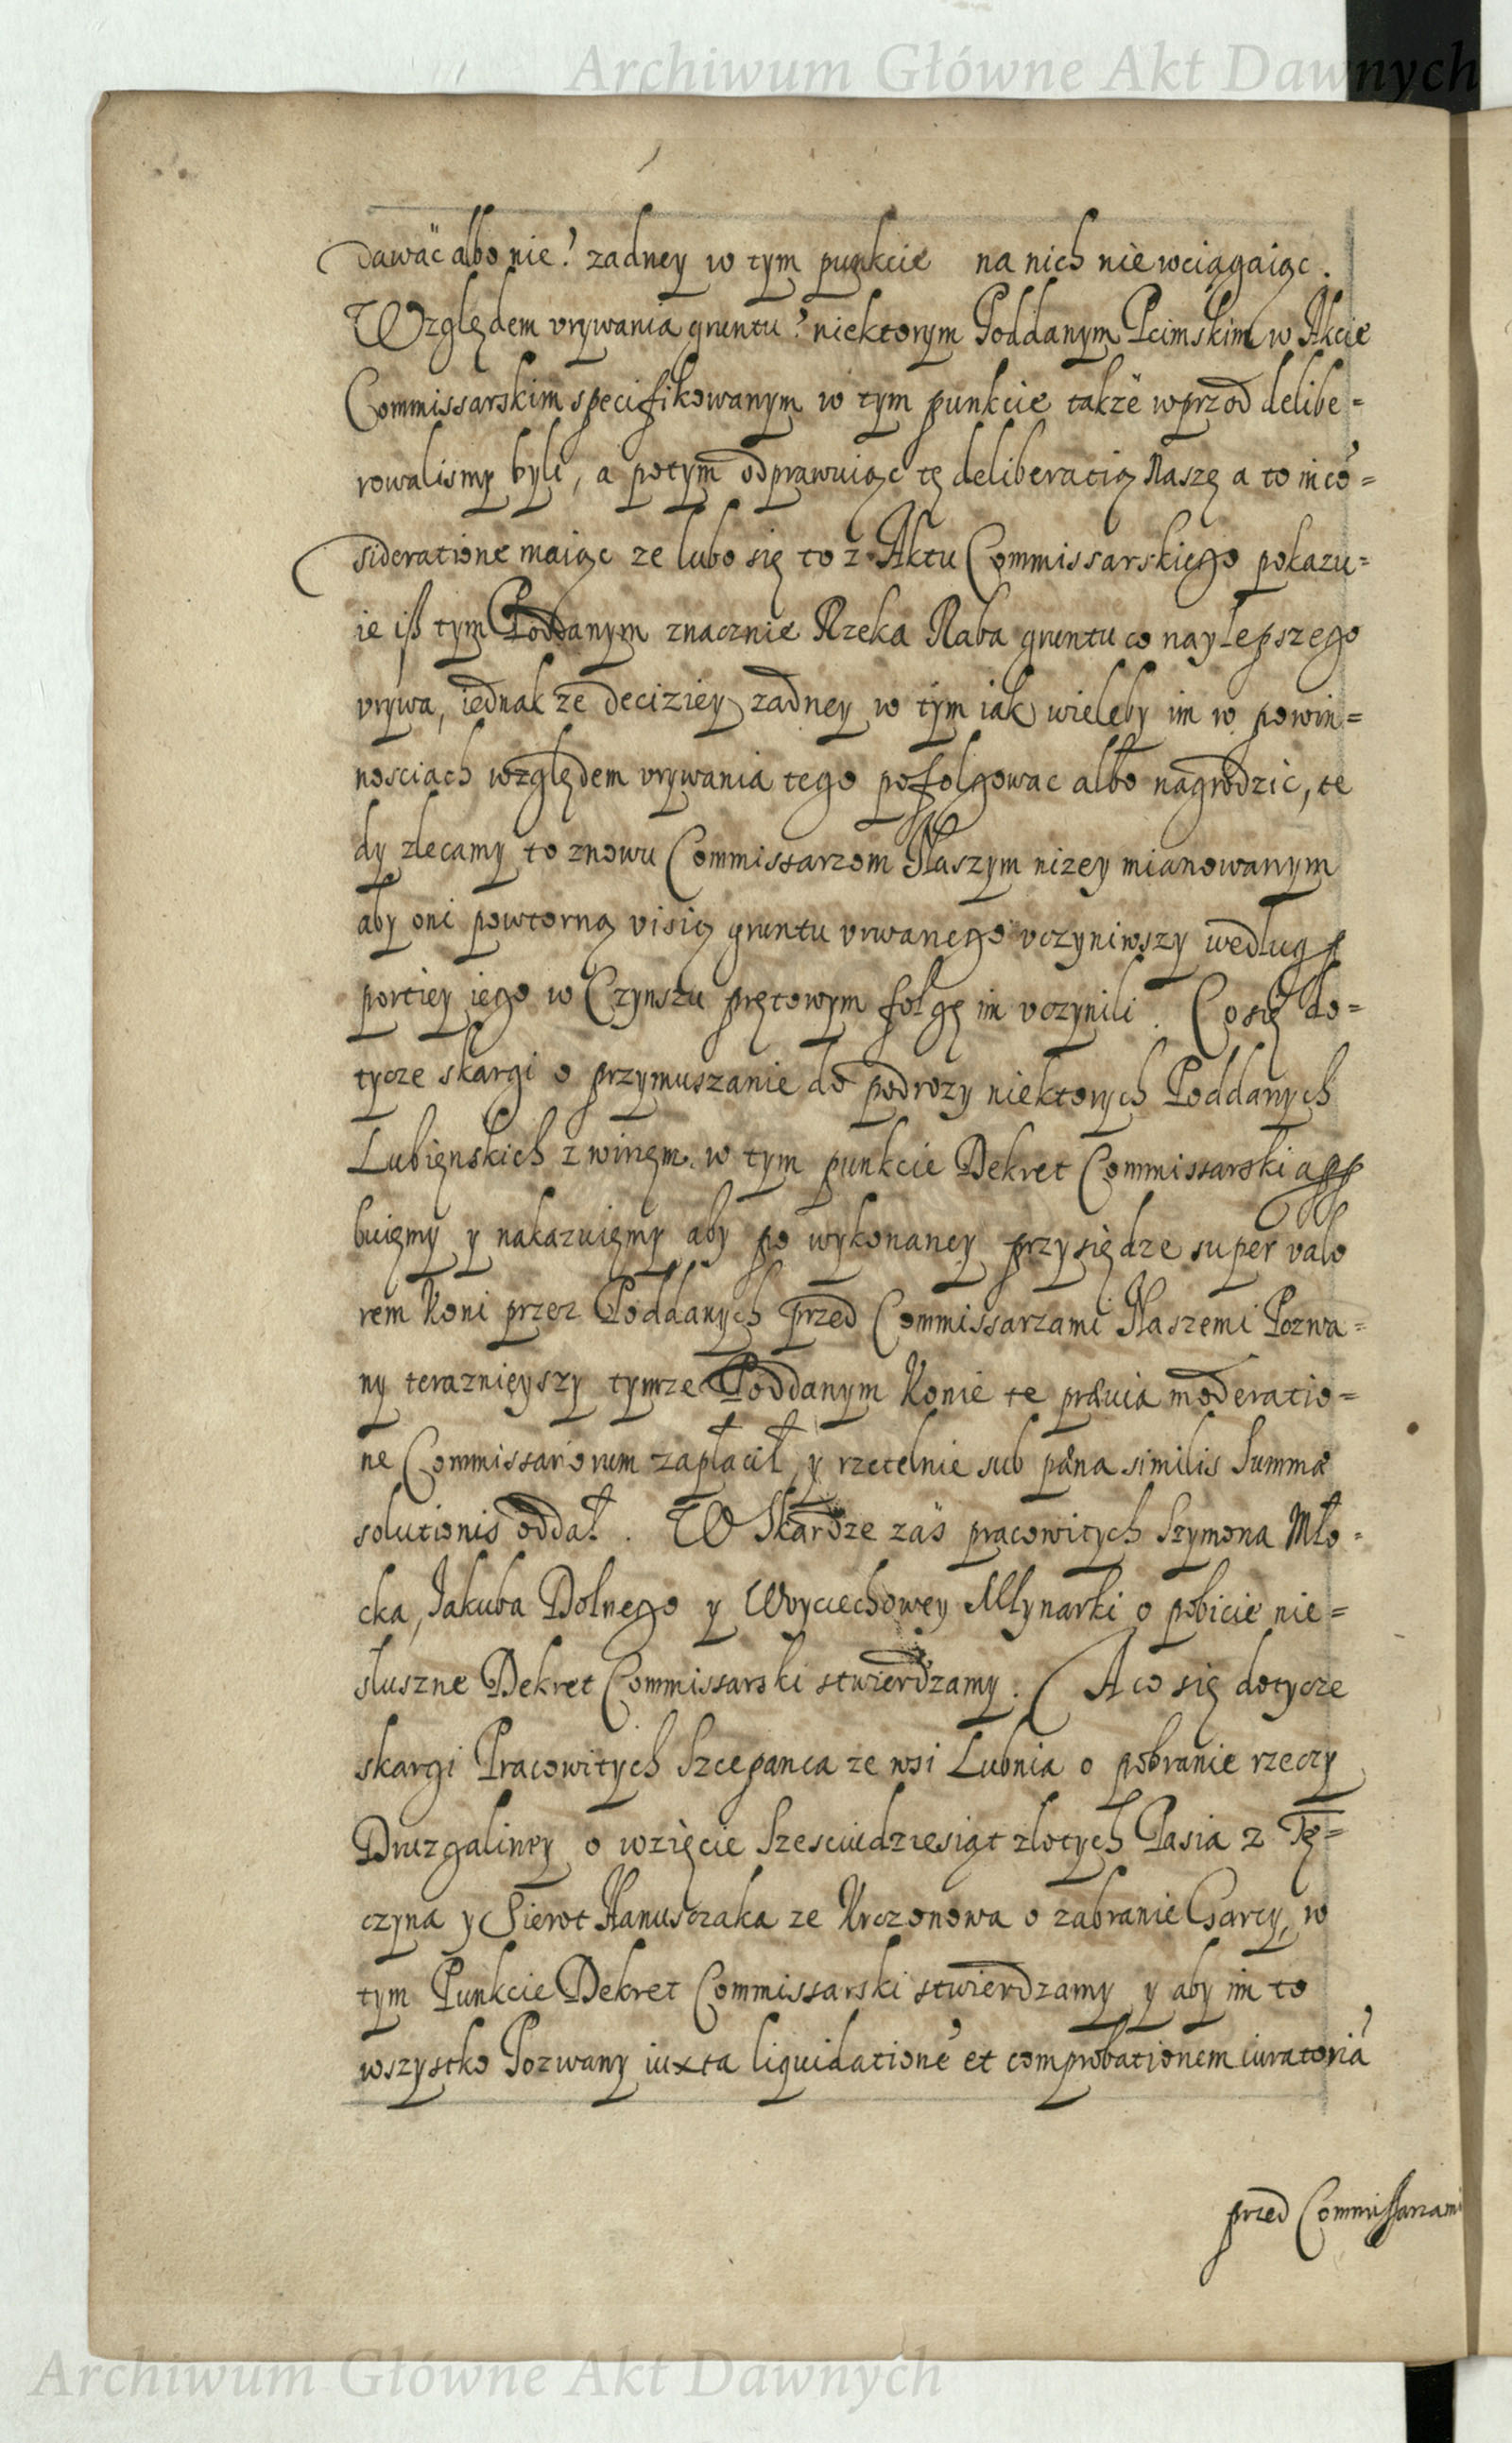 Archiwum Główne Akt Dawnych
dawać albo nie? zadney w tym punkcie na nich nie wciągaiąc.
Względem vrywania gruntu? niektorym Poddanym Pcimskim w Akcie
Commissarskim specifikowanym w tym punkcie także wprzod delibe=
rowalismy byli, a potym odprawuiąc tę deliberatią Naszę a to in co=
sideratione maiąc ze lubo się to z Aktu Commissarskiego pokazu=
ie iß tym Poddanym znacznie Rzeka Raba gruntu co naylepszego
vrywa, iednak ze deciziey zadney w tym iak wieleby im w powin=
nosciach względem vrywania tego pofolgowac albo nagrodzic, te
dy zlecamy to znowu Commissarzom Naszym nizey mianowanym
aby oni powtorną visią gruntu vrwanego vczyniwszy według p
portiey iego w Czynszu prętowym folgę im vczynili. Co się do=
tycze skargi o przymuszanie do podrozy niektorych Poddanych
Lubięnskich z winęm. w tym punkcie Dekret Commissarski app
buięmy y nakazuięmy aby po wykonaney przysiędze super valo
rem Koni przez Poddanych przed Commissarzami Naszemi Pozwa=
ny teraznięyszy tymze Poddanym Konie te prævia moderatio=
ne Commissariorum zapłacił, y rzetelnie sub pæna similis Summæ
solutionis oddał. W Skardze zaś pracowitych Szymona Mło=
cka, Jakuba Dolnego y Woyciechowey Młynarki o pobicie nie=
słuszne Dekret Commissarski stwierdzamy. A co się dotycze
skargi Pracowitych Szczepanca ze wsi Lubnia o pobranie rzeczy
Druzgaliney o wzięcie Szesciudziesiąt zlotych Pasia z Tę=
czyna y Sierot Hanusczaka ze Krczonowa o zabranie Garcy, w
tym Punkcie Dekret Commissarski stwierdzamy y aby im to
wszystko Pozwany iuxta liquidatione et comprobationem iuratoria
przed Commissarzami
Archiwum Główne Akt Dawnych